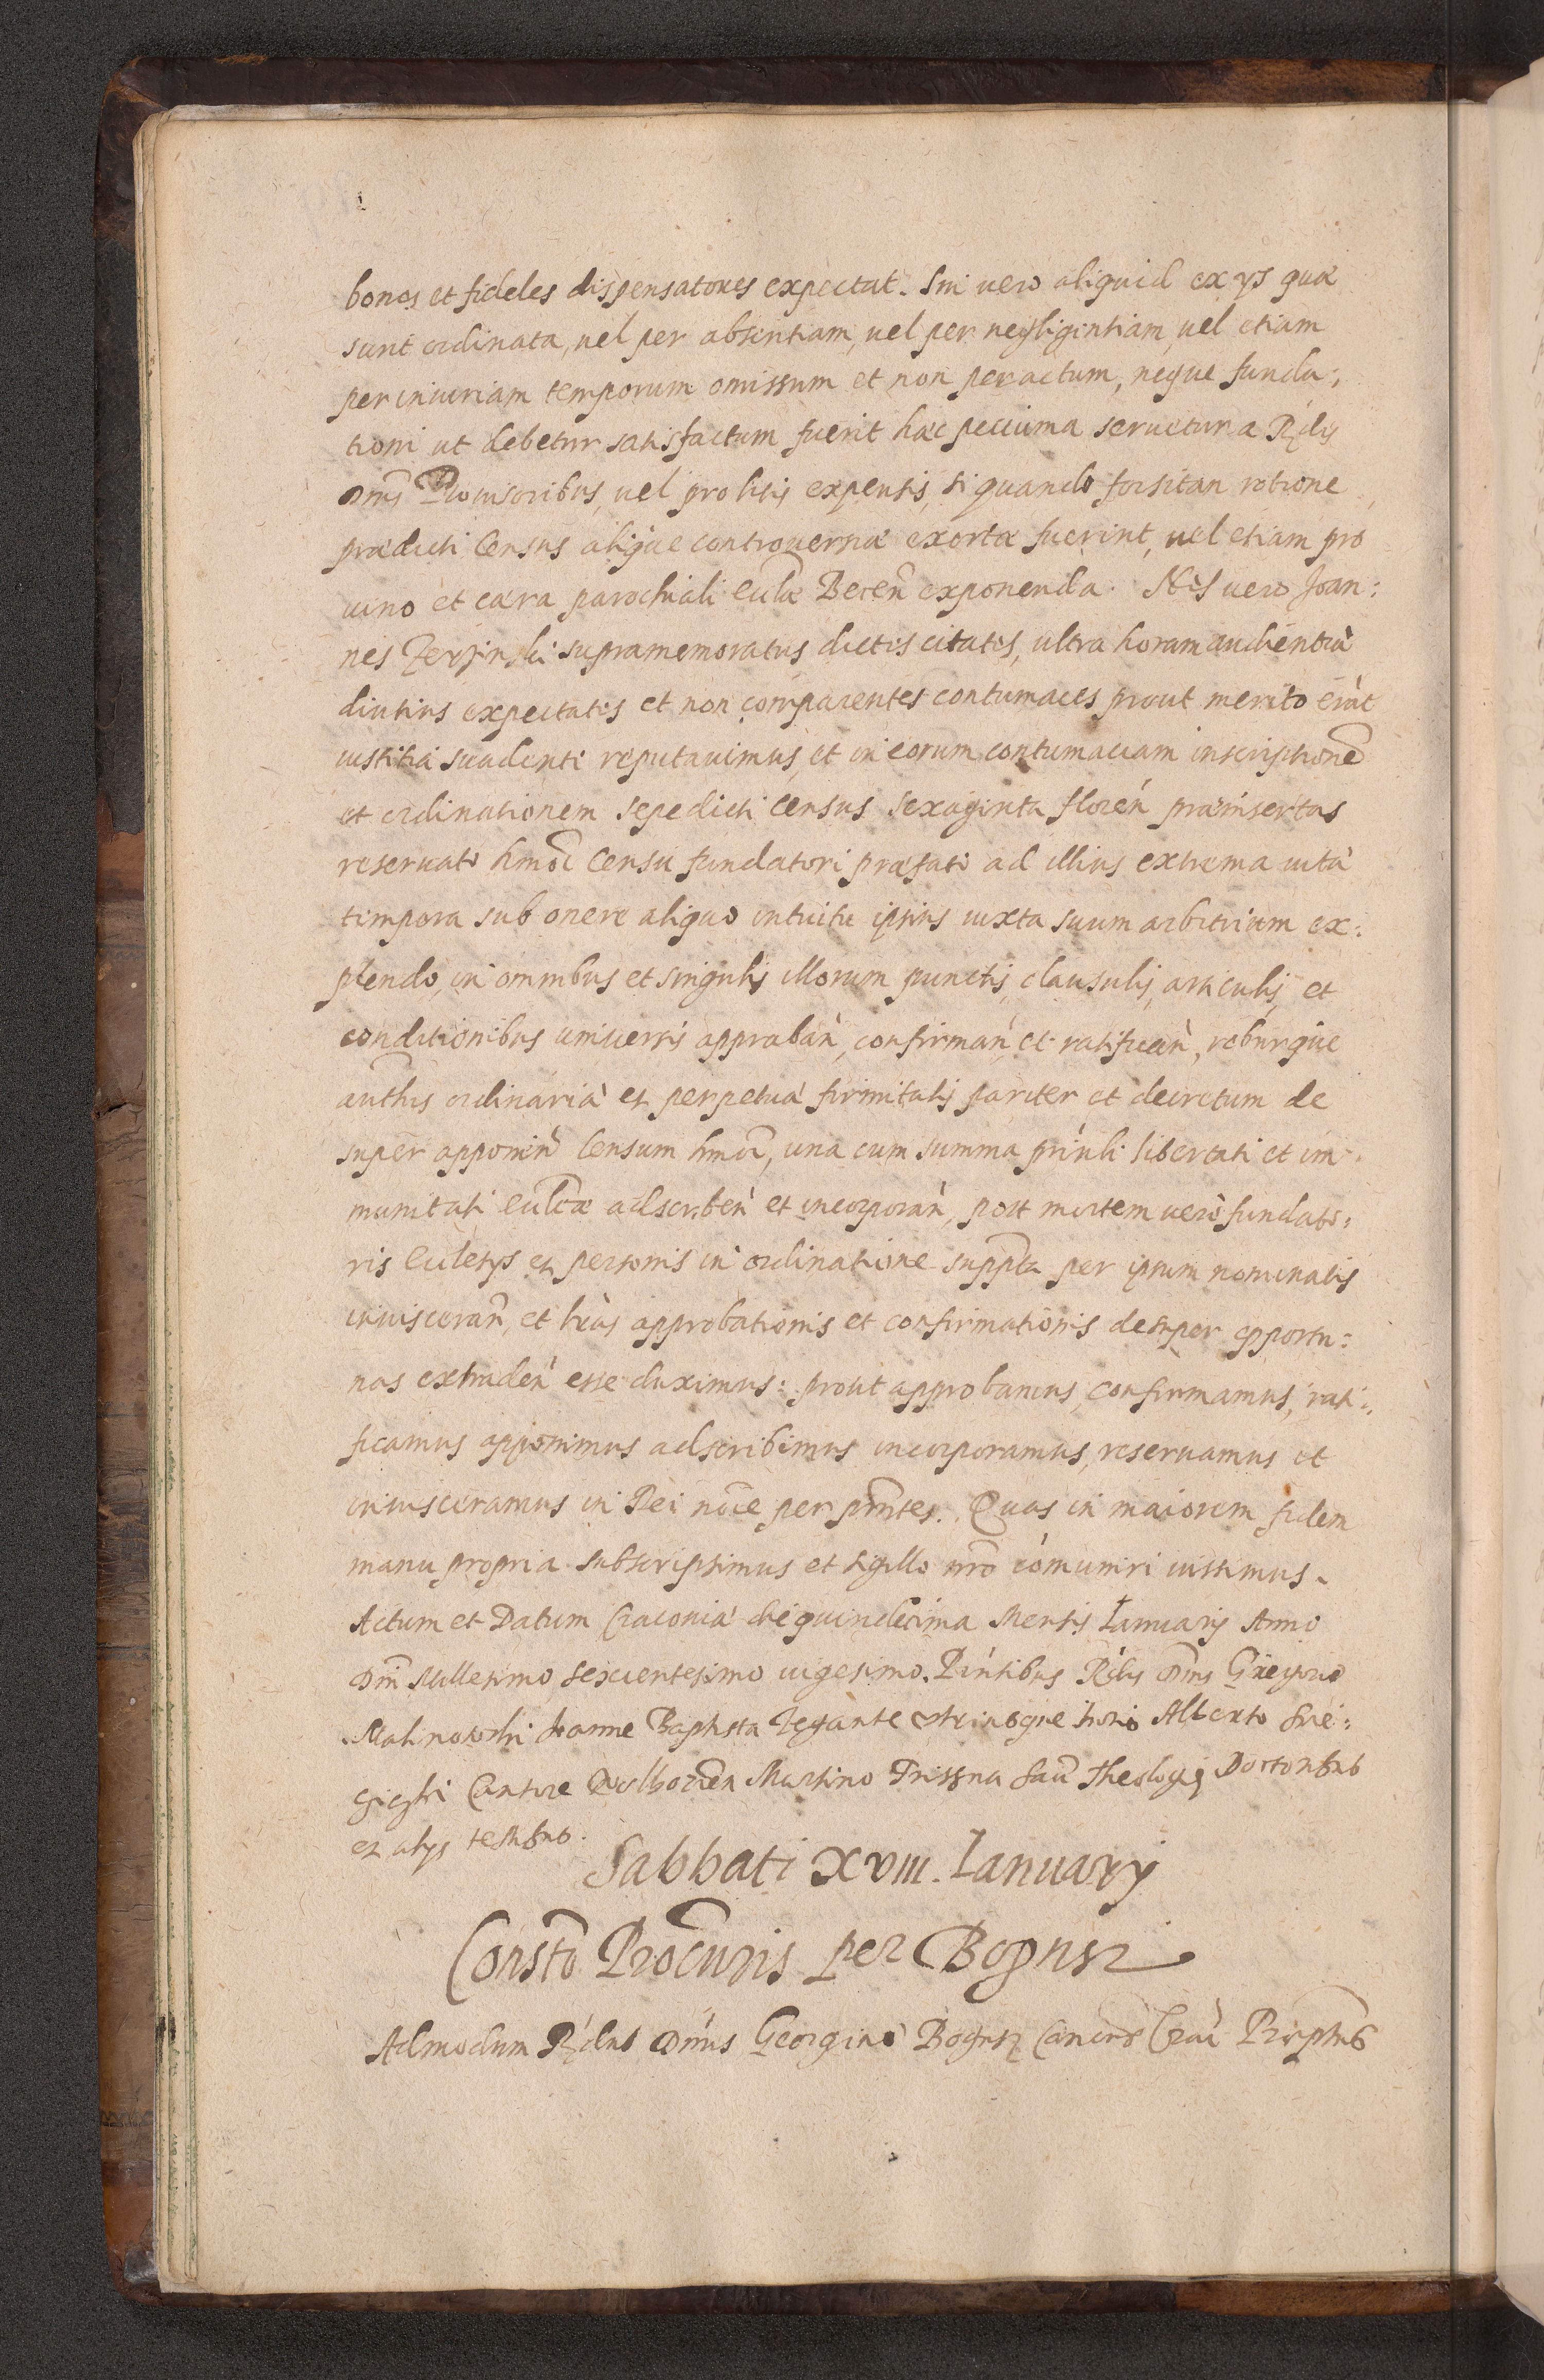 bonos et fideles dispensatores expectat. Sin uero aliquid ex ijs quæ
sunt ordinata, uel per absentiam, uel per negligentiam, uel etiam
per iniuriam temporum omissum et non peractum, neque funda:
tioni ut debetur satisfactum fuerit hæc pecunia seruetur a Rdis
Dnis Prouisoribus, uel pro litis expensis, si quando forsitan ratione
prædicti Census aliquæ controuersiæ exortæ fuerint, uel etiam pro
uino et cæra parochiali Ecclæ Becen exponenda. Nos uero Joan:
nes supramemoratus dictis citatis, ultra horam audientiæ
diutius expectatis et non comparentes contumaces prout merito erāt
iustitia suadenti reputauimus, et in eorum contumaciam inscriptionē
et ordinationem sepedicti Census sexaginta floren præinsertas
reseruato hmōi Censu fundatori præfato ad illius extrema uitæ
tempora sub onere aliquo intuitu ipsius iuxta suum arbitrium ex:
plendo, in omnibus et singulis illorum punctis, clausulis, articulis, et
conditionibus uniuersis approban, confirman, et ratifican, roburque
authtis ordinariæ et perpetuæ firmitatis pariter et decretum de
super apponen Censum hmōi, una cum summa prinli libertati et im:
munitati Ecclcæ adscriben et incorporan, post mortem uero fundato:
ris Ecclesijs et personis in ordinatione suppta per ipsum nominatis
inuisceran, et lras approbationis et confirmationis desuper opportu:
nas extraden esse duximus: prout approbamus, confirmamus, rati:
ficamus apponimus adscribimus incorporamus, reseruamus et
inuisceramus in Dei nōie per pntes. Quas in maiorem fidem
manu propria subscripsimus et sigillo nro cōmuniri iussimus.
Actum et Datum Cracouiæ die quindecima Mensis Ianuarij Anno
Dni Millesimo sexcentesimo uigesimo. Pntibus Rdis Dnis Gregorio
Joanne Baptista Zegante utriusque Iuris Alberto Sze:
Cantore Wolborien Martino Sac Theologiæ Doctoribus
et alijs testibus.
Sabbati XVIII. Ianuarij
Constō Procuris per Bogusz
Admodum Rdus Dnus Georgius Bogusz Cancus Crac Præptus